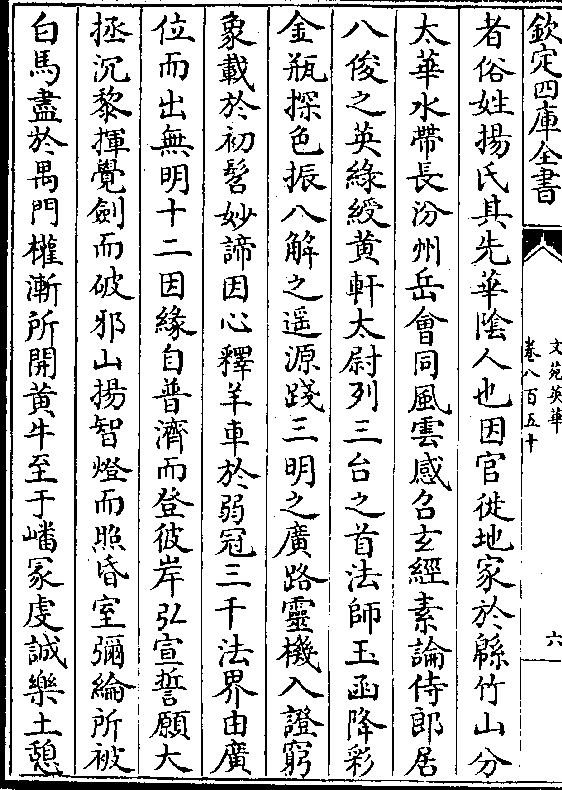 欽定四庫全書
文苑英華
卷八百五十
六
者俗姓揚氏其先華隂人也因官徙地家於緜竹山分
太華水帶長汾州岳會同風雲感召玄經素論侍郎居
八俊之英緑綬黄軒太尉列三台之首法師玉函降彩
金瓶探色振八解之遥源踐三明之廣路靈機入證窮
象載於初髫妙諦因心釋羊車於弱冠三千法界由廣
位而出無明十二因緣自普濟而登彼岸弘宣誓願大
拯沉黎揮覺劍而破邪山揚智燈而照昏室彌綸所被
白馬盡於禺門權漸所開黄牛至于嶓冢虔誠樂土憩